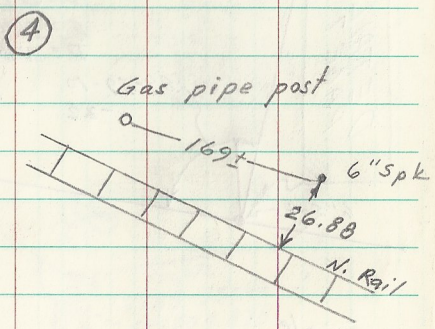 4
Gas pipe post
169±
6" Spk
26.88
N. Rail